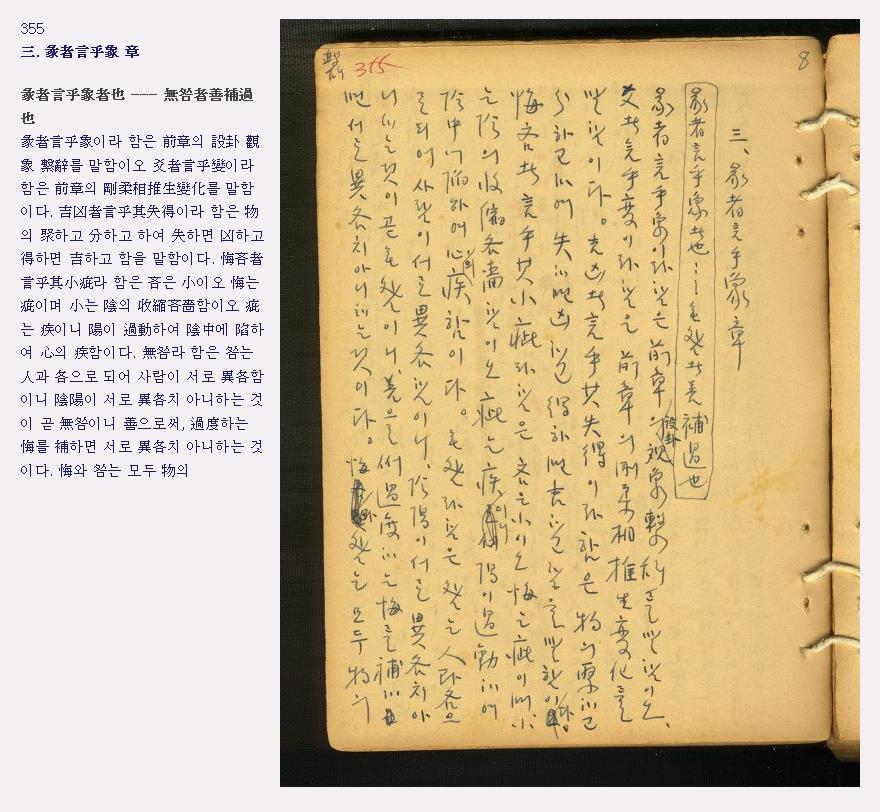 355
三. 彖者言乎象 章
彖者言乎象者也 --- 無咎者善補過
也
彖者言乎象이라 함은 前章의 設卦 觀
象 繫辭를 말함이오 爻者言乎變이라
함은 前章의 剛柔相推生變化를 말함
이다. 吉凶者言乎其失得이라 함은 物
의 聚하고 分하고 하여 失하면 凶하고
得하면 吉하고 함을 말함이다. 悔吝者
言乎其小疵라 함은 吝은 小이오 悔는
疵이며 小는 陰의 收縮吝嗇함이오 疵
는 疾이니 陽이 過動하여 陰中에 陷하
여 心의 疾함이다. 無咎라 함은 咎는
人과 各으로 되어 사람이 서로 異各함
이니 陰陽이 서로 異各치 아니하는 것
이 곧 無咎이니 善으로써, 過度하는
悔를 補하면 서로 異各치 아니하는 것
이다. 悔와 咎는 모두 物의
8
355
三、彖者言乎象章
彖者言乎象者也……無咎者善補過也
彖者言乎象이라 함은 前章의 設卦觀象 繫辭를 말함이오、
爻者言乎變이라 함은 前章의 剛柔相推生變化를
말함이다。吉凶者言乎其失得이라 함은 物의 聚하고
分하고 하여 失하면 凶하고 得하면 吉하고 함을 말함이다。
悔吝者言乎其小疵라 함은 吝은 小이오 悔는 疵이며 小
는 陰의 收縮吝嗇함이오 疵는 疾이니 陽이 過動하여
陰中에 陷하여 心의 疾함이다。無咎라 함은 咎는 人과 各으
로 되어 사람이 서로 異各함이니、陰陽이 서로 異各치 아
니하는 것이 곧 無咎이니、善으로써 過度하는 悔를 補하
면 서로 異各치 아니하는 것이다。悔와 咎는 모두 物의